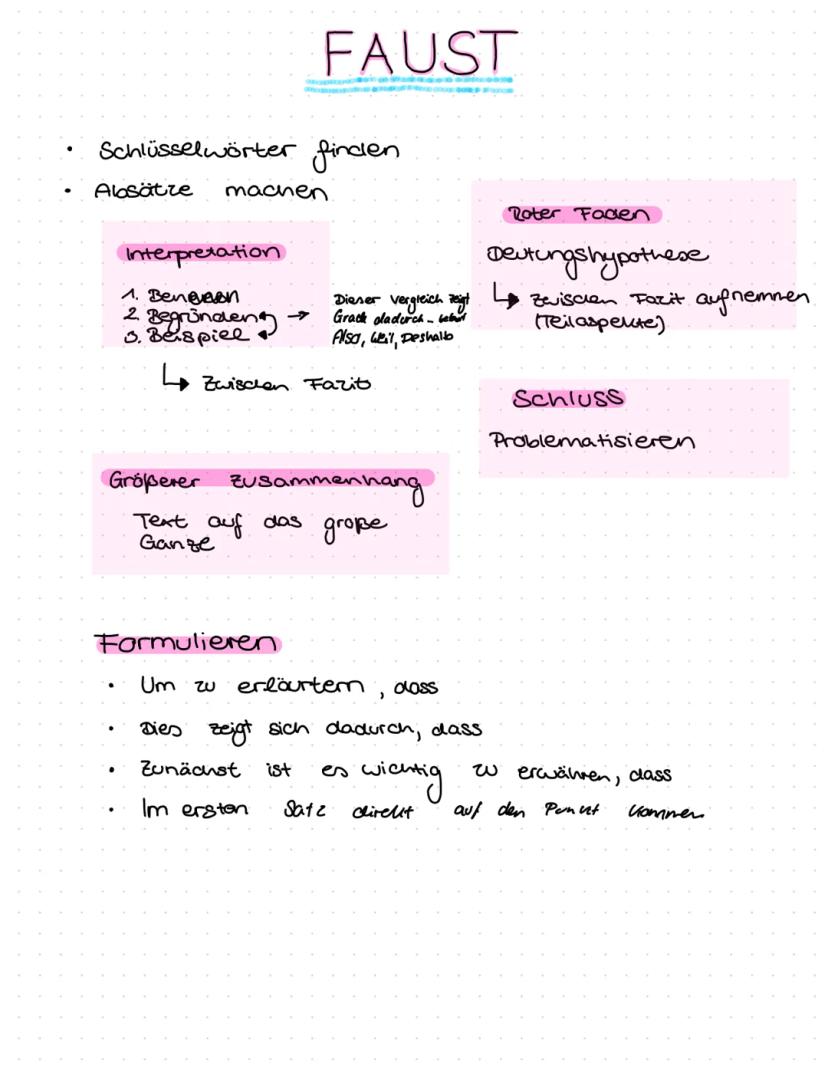 FAUST
• Schlüsselwörter finden
• Absätze machen
Interpretation
1. Benennen
2. Begründen →
3. Beispiel
Dieser Vergleich zeigt
Grade dadurch
Also, Weil, Deshalb
↳ Zwischen Fazit
Roter Faden
Deutungshypothese
↳ Zwischen Fazit aufnehmen
(Teilaspekte)
Schluss
Problematisieren
Größerer Zusammenhang
Text auf das große
Ganze
Formulieren
• Um zu erläutern, dass
• Dies zeigt sich dadurch, dass
• Zunächst ist es wichtig zu erwähnen, dass
• Im ersten Satz direkt auf den Punkt kommen